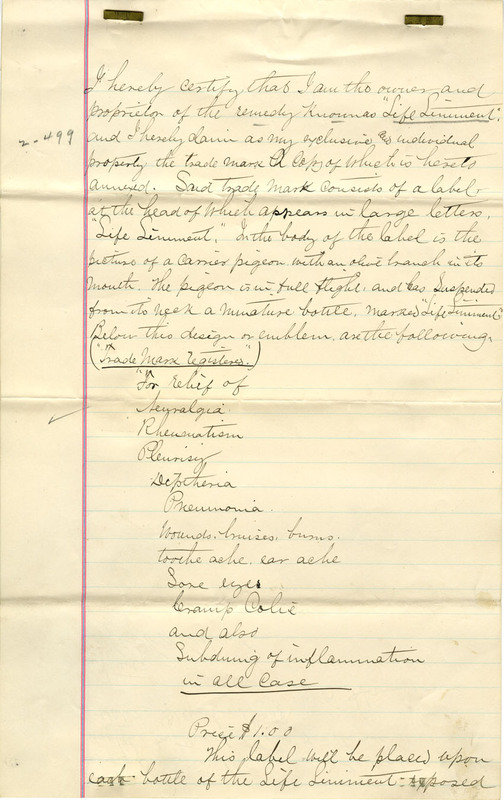 I hereby certify that I am the owner and
proprietor of the remedy Known as "Life Liniment".
2-499
and I hereby claim as my exclusive & individual
property the trade mark a Copy of Which is hereto
annexed. Said trade mark consists of a label
at the head of Which appears in large letters,
"Life Liniment." In the body of the label is the
picture of a carrier pigeon with an olive branch in its
mouth. The pigeon is in full flight, and has Suspended
from its neck a minature bottle, marked "Life Liniment"
Below this design or emblem, are the following,
("Trade Mark registered".)
"For relief of
Neuralgia
Rheumatism
Pleurisy
Deptheria
Pneumonia.
Wounds. bruises. burns.
toothe ache. ear ache
Sore eyes
Cramp Colic
and also
Subduing of inflammation
in all Case
Price $1.00
This label will be placed upon
each bottle of the Life Liniment exposed